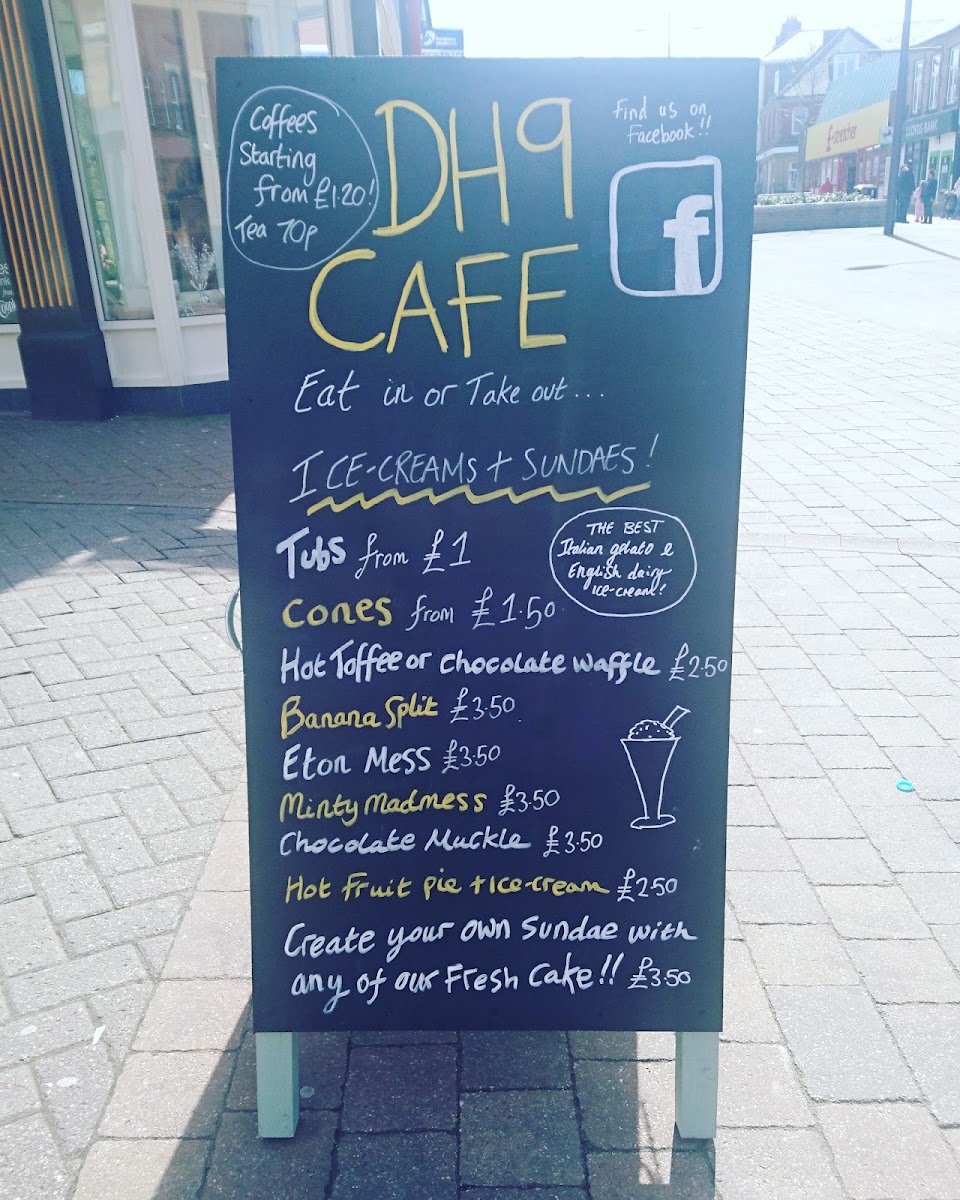 Coffees
Starting
from £1.20!
Tea 70p
DH9
CAFE
Find us on
Facebook!!
f
Eat in or Take out...
ICE-CREAMS + SUNDAES!
Tubs from £1
THE BEST
Italian gelato &
English dairy
ICE-cream!
Cones from £1.50
Hot Toffee or chocolate waffle £2.50
Banana Split £3.50
Eton Mess £3.50
Minty Madness £3.50
Chocolate Muckle £3.50
Hot Fruit pie + Ice-cream £2.50
Create your own sundae with
any of our Fresh Cake!! £3.50
LLOYDS BANK